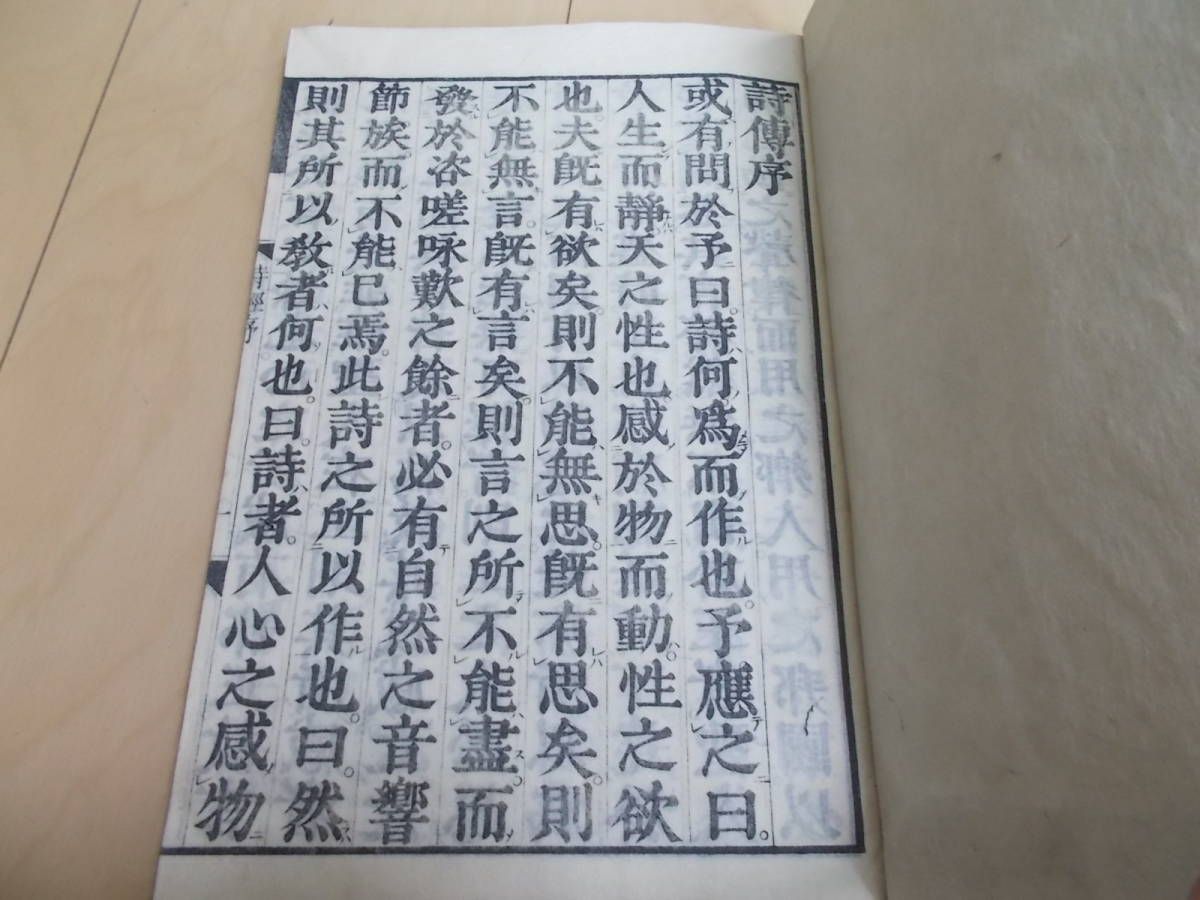 詩傳序
或有問於予曰。詩何爲而作也。予應之曰。
人生而靜天之性也感於物而動。性之欲
也。夫既有欲矣。則不能無思。既有思矣。則
不能無言。既有言矣。則言之所不能盡。而
發於咨嗟咏歎之餘者。必有自然之音響
節族。而不能已焉。此詩之所以作也。曰。然
則其所以敎者何也。曰詩者。人心之感物
詩經序
一